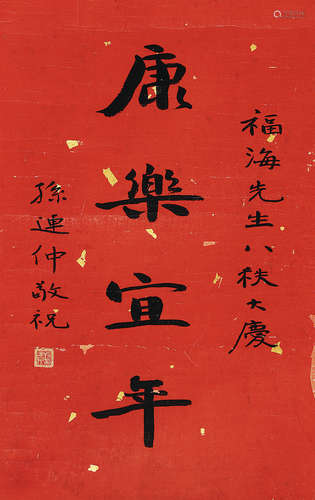 福海先生八秩大慶
康樂宜年
孫連仲敬祝